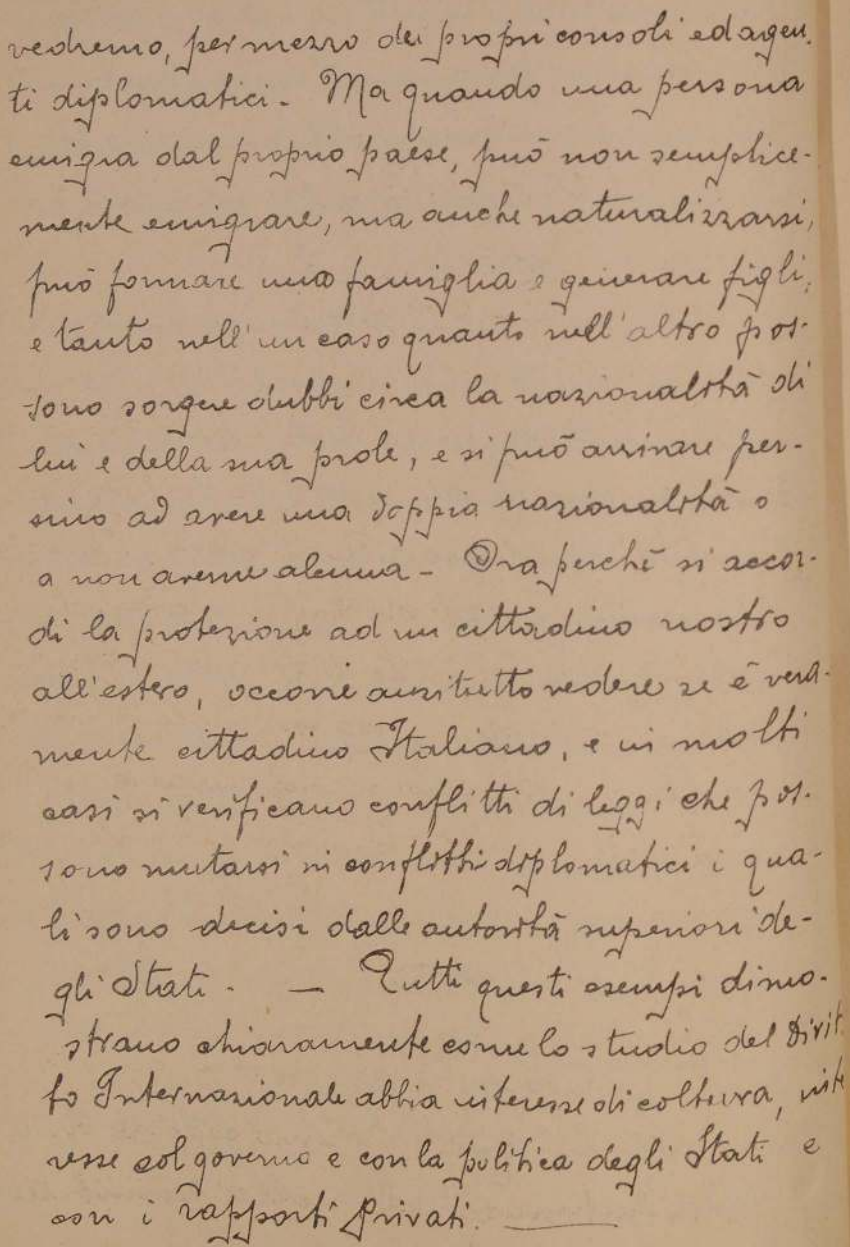 vedremo, per mezzo dei propri consoli ed agen-
ti diplomatici. Ma quando una persona
emigra dal proprio paese, può non semplice-
mente emigrare, ma anche naturalizzarsi,
può formare una famiglia e generare figli,
e tanto nell'un caso quanto nell'altro pos-
sono sorgere dubbi circa la nazionalità di
lui e della sua prole, e si può arrivare per-
sino ad avere una doppia nazionalità o
a non averne alcuna - Ora perchè si accor-
di la protezione ad un cittadino nostro
all'estero, occorre anzitutto vedere se è vera-
mente cittadino Italiano, e in molti
casi si verificano conflitti di leggi che pos-
sono mutarsi in conflitti diplomatici i qua-
li sono decisi dalle autorità superiori de-
gli Stati. — Tutti questi esempi dimo-
strano chiaramente come lo studio del Dirit-
to Internazionale abbia interesse di coltura, inte
resse col governo e con la politica degli Stati e
con i rapporti Privati.